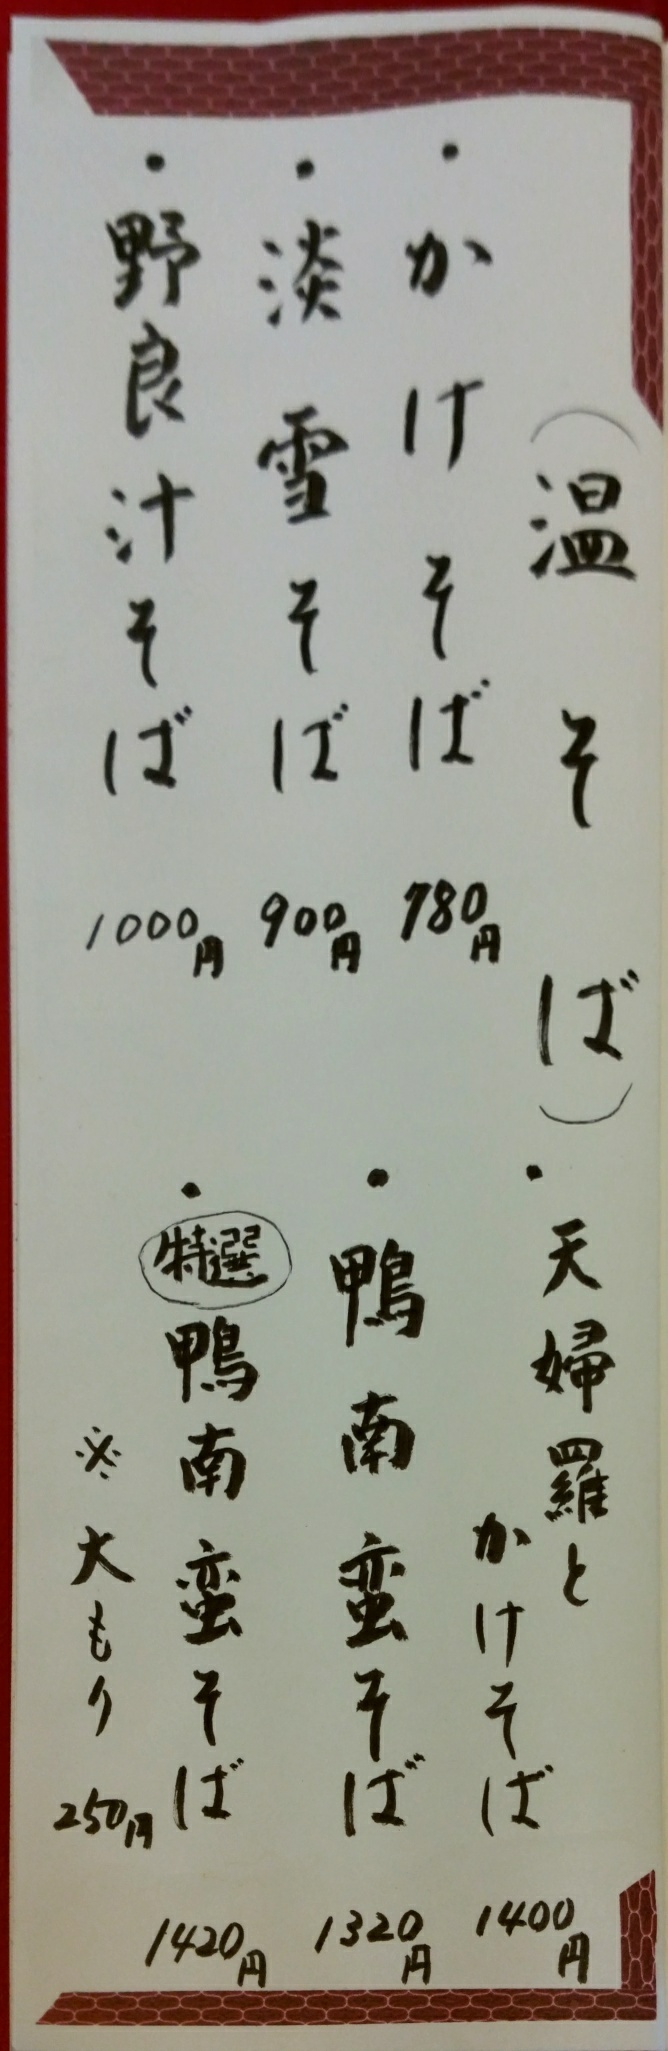 (温そば)
・かけそば 780円
・淡雪そば 900円
・野良汁そば 1000円
・天婦羅と
かけそば 1400円
・鴨南蛮そば 1320円
・特選鴨南蛮そば 1420円
※大もり 250円